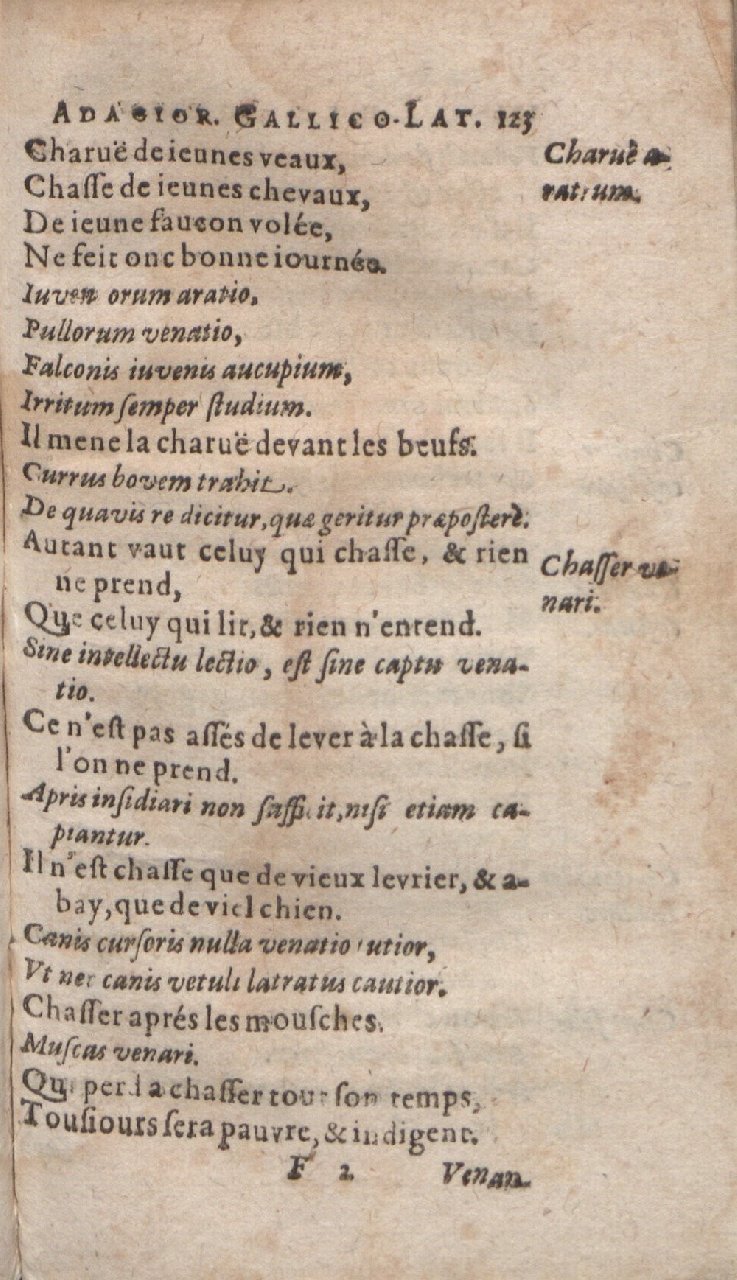 ADAGIOR. GALLICO-LAT. 123
Charuë de ieunes veaux,
Charuë a-
Chasse de ieunes chevaux,
ratrum.
De ieune faucon volée,
Ne feit onc bonne iournée.
Iuvencorum aratio,
Pullorum venatio,
Falconis iuvenis aucupium,
Irritum semper studium.
Il mene la charuë devant les beufs.
Currus bovem trahit.
De quavis re dicitur, quæ geritur præposterè.
Autant vaut celuy qui chasse, & rien
Chasser ve-
ne prend,
nari.
Que celuy qui lit, & rien n'entend.
Sine intellectu lectio, est sine captu vena-
tio.
Ce n'est pas assés de lever à la chasse, si
l'on ne prend.
Apris insidiari non sufficit, nisi etiam ca-
piantur.
Il n'est chasse que de vieux levrier, & a-
bay, que de viel chien.
Canis cursoris nulla venatio tutior,
Vt nec canis vetuli latratus cautior.
Chasser aprés les mousches.
Muscas venari.
Qui perd a chasser tout son temps,
Tousiours sera pauvre, & indigent.
F 2. Venan-